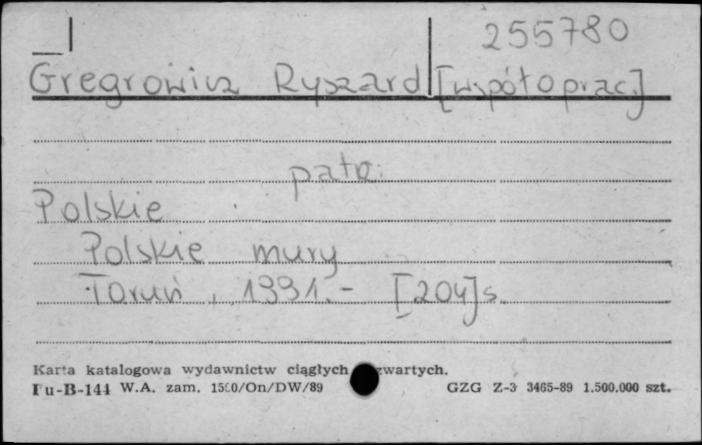 255780
Gregrowicz Ryszard [współoprac.]
patrz:
Polskie
Polskie mury
Toruń, 1991.- [204]s.
Karta katalogowa wydawnictw ciągłych zwartych.
Pu-B-144 W.A. zam. 1580/On/DW/89 GZG Z-3 3465-89 1.500.000 szt.